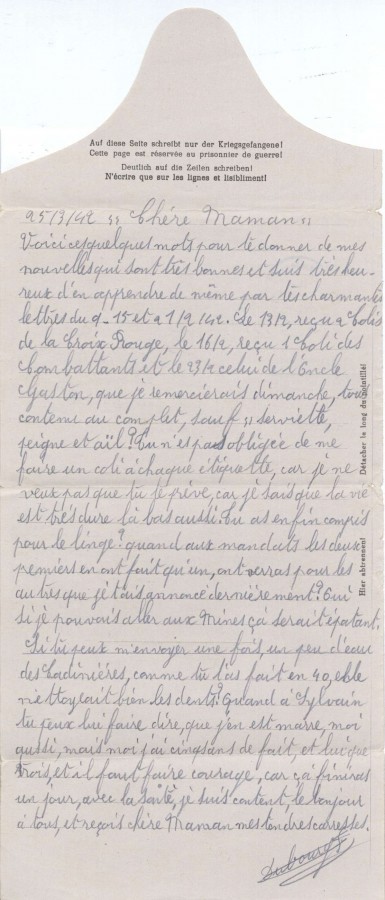 Auf diese Seite schreibt nur der Kriegsgefangene!
Cette page est réservée au prisonnier de guerre!
Deutlich auf die Zeilen schreiben!
N'écrire que sur les lignes et lisiblment!
25/3/42 " Chère Maman "
Voici ces quelques mots pour te donner de mes
nouvelles qui sont très bonnes et suis très heu-
reux d'en apprendre de même par tes charmantes
lettres du 9-15 et 21/2/42. Le 13/2, reçu 2 Colis
de la Croix Rouge, le 16/2, reçu 1 Coli des
Combattants et le 23/2 celui de l'Oncle
Gaston, que je remercierais dimanche, tout
contenu au complet, sauf " serviette,
peigne et aïl? Tu n'es pas obligée de me
faire un coli à chaque étiquette, car je ne
veux pas que tu te prive, car je sais que la vie
est très dure là bas aussi. Tu as enfin compris
pour le linge? quand aux mandats les deux
premiers en ont fait qu'un, ont verras pour les
autres que je t'ais annoncé dernièrement? Oui
si je pouvais aller aux Mines çà serait épatant.
Si tu peux m'envoyer une fois, un peu d'eau
des comme tu l'as fait en 40, elle
nettoyait bien les dents? Quand à Sylvain
tu peux lui faire dire, que j'en est marre, moi
aussi, mais moi j'ai cinq ans de fait, et lui que
trois, et il faut faire courage, car çà finiras
un jour, avec la santé, je suis content, le bonjour
à tous, et reçois chère Maman mes tendres caresses.
Dubourg
Hier abtrennen! Détacher le long du pointillé!